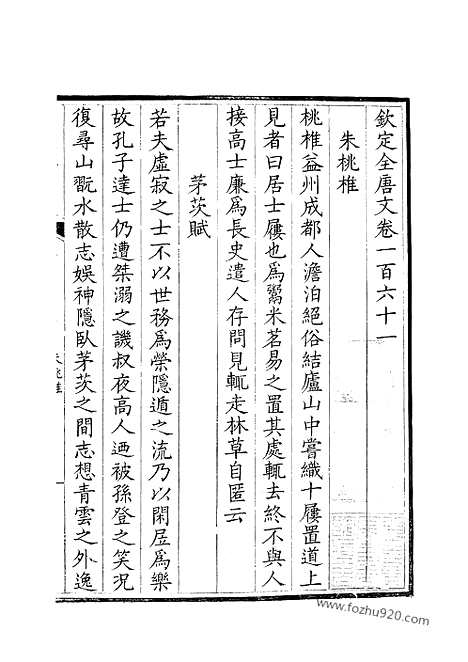 欽定全唐文卷一百六十一
朱桃椎
桃椎益州成都人澹泊絕俗結廬山中嘗織十屨置道上
見者曰居士屨也爲鬻米茗易之置其處輒去終不與人
接高士廉爲長史遣人存問見輒走林草自匿云
茅茨賦
若夫虛寂之士不以世務爲榮隱遁之流乃以閑居爲樂
故孔子達士仍遭桀溺之譏叔夜高人迺被孫登之笑况
復尋山翫水散志娛神隱臥茅茨之間志想青雲之外逸
一
www.fozhu920.com